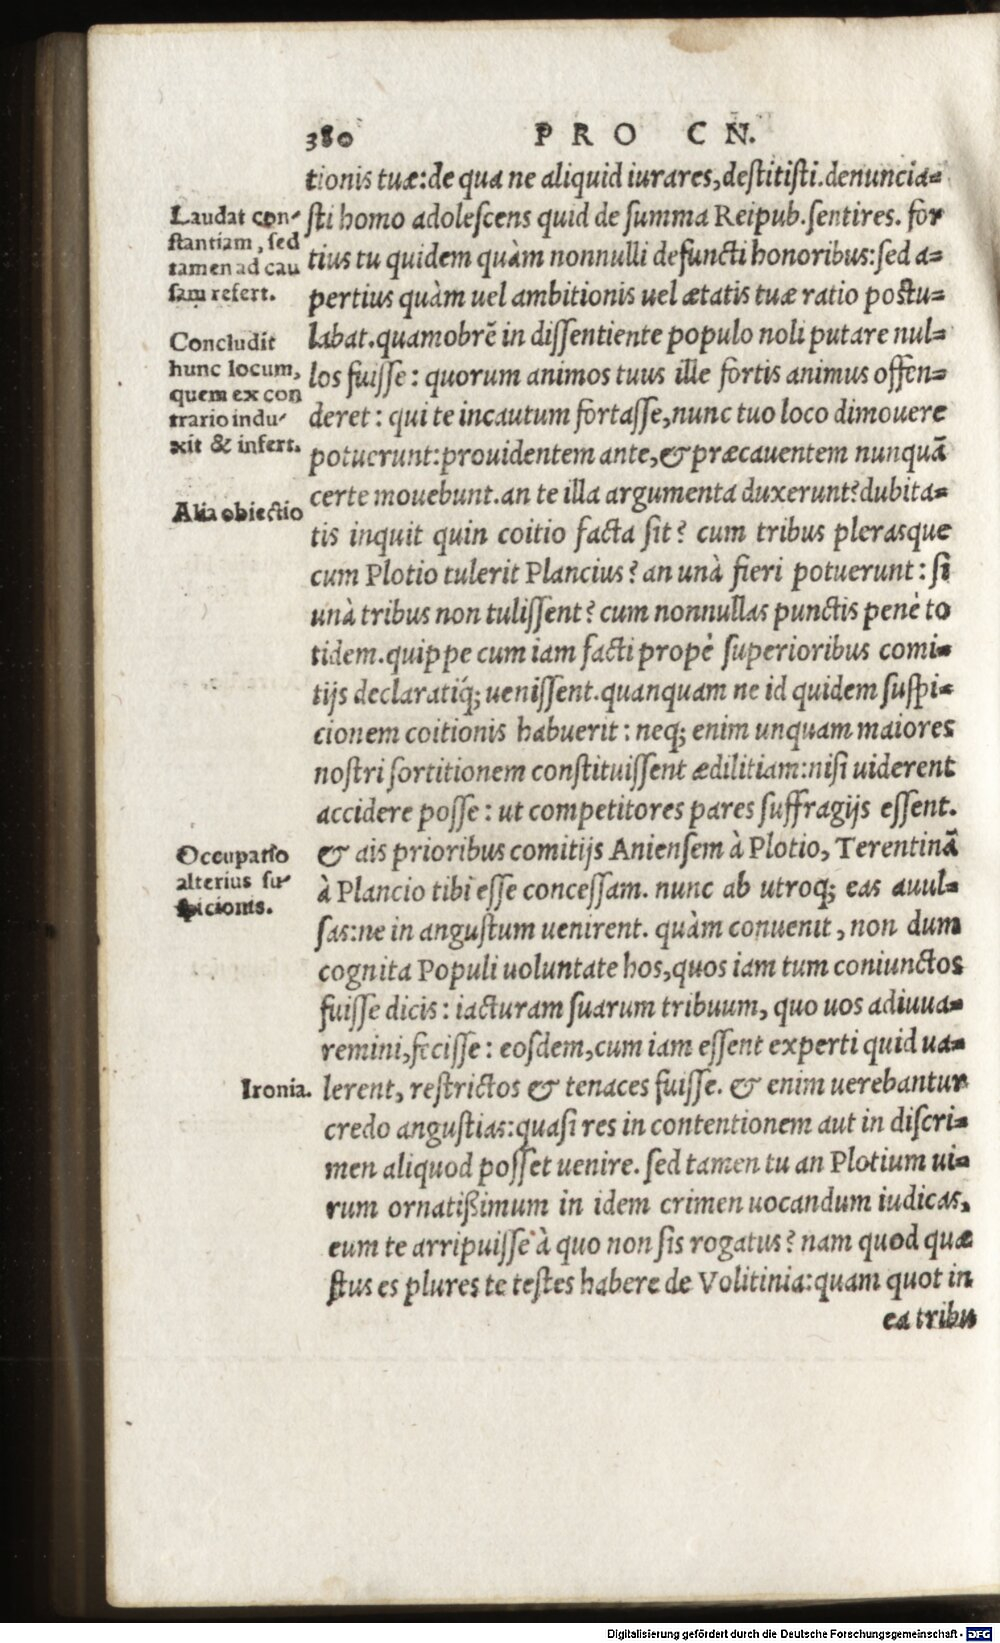 380 PRO CN.
tionis tuæ:de qua ne aliquid iurares,destitisti.denuncia=
sti homo adolescens quid de summa Reipub.sentires. for
tius tu quidem quàm nonnulli defuncti honoribus:sed a=
pertius quàm uel ambitionis uel ætatis tuæ ratio postu=
labat.quamobrẽ in dissentiente populo noli putare nul=
los fuisse: quorum animos tuus ille fortis animus offen=
deret: qui te incautum fortasse,nunc tuo loco dimouere
potuerunt:prouidentem ante,& præcauentem nunquã
certe mouebunt.an te illa argumenta duxerunt?dubita=
tis inquit quin coitio facta sit? cum tribus plerasque
cum Plotio tulerit Plancius? an unà fieri potuerunt: si
unà tribus non tulissent? cum nonnullas punctis penè to
tidem.quippe cum iam facti propè superioribus comi=
tijs declaratiq́; uenissent.quanquam ne id quidem suspi=
cionem coitionis habuerit: neq; enim unquam maiores
nostri sortitionem constituissent ædilitiam:nisi uiderent
accidere posse: ut competitores pares suffragijs essent.
& ais prioribus comitijs Aniensem à Plotio, Terentinã
à Plancio tibi esse concessam. nunc ab utroq; eas auul=
sas:ne in angustum uenirent. quàm conuenit, non dum
cognita Populi uoluntate hos,quos iam tum coniunctos
fuisse dicis: iacturam suarum tribuum, quo uos adiuua=
remini,fecisse: eosdem,cum iam essent experti quid ua=
lerent, restrictos & tenaces fuisse. & enim uerebantur
credo angustias:quasi res in contentionem aut in discri=
men aliquod posset uenire. sed tamen tu an Plotium ui=
rum ornatißimum in idem crimen uocandum iudicas,
eum te arripuisse à quo non sis rogatus? nam quod quæ
stus es plures te testes habere de Volitinia:quam quot in
ea tribu
Laudat con-
stantiam, sed
tamen ad cau
sam refert.
Concludit
hunc locum,
quem ex con
trario indu-
xit & infert.
Alia obiectio
Occupatio
alterius su-
spicionis.
Ironia.
Digitalisierung gefördert durch die Deutsche Forschungsgemeinschaft - DFG